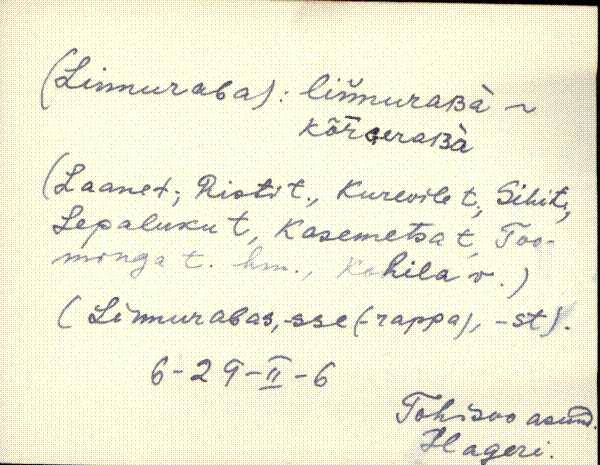 (Linnuraba): lin̆nuraʙà ~
kȭrɢeraʙà
(Laanet; Ristit., Kurevilet, Sihit;
Lepalukut, Kasemetsat, Too-
monga t. hm., Kohila v.)
(Linnurabas, -sse (-rappa), -st).
6-29-II-6
Tohisoo asund.
Hageri.